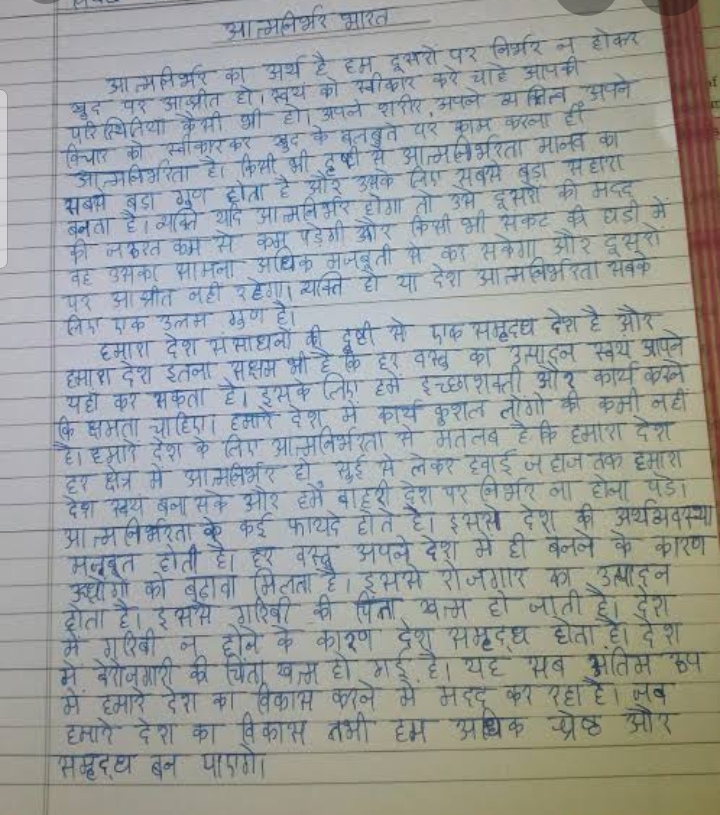 आत्मनिर्भर भारत
आत्मनिर्भर का अर्थ है हम दूसरों पर निर्भर न होकर
खुद पर आश्रीत हो। स्वयं को स्वीकार करे चाहे आपकी
परिस्थितिया कैसी भी हो। अपने शरीर, अपने व्यक्तित्व अपने
विचार को स्वीकारकर खुद के बलबुते पर काम करना ही
आत्मनिर्भरता है। किसी भी दृष्टी से आत्मनिर्भरता मानव का
सबसे बडा गुण होता है और उसके लिए सबसे बुडा सहारा
बनता है। व्यक्ति यदि आत्मनिर्भर होगा तो उसे दूसरो की मदद
की जरुरत कम से कम पडेगी और किसी भी संकट की घडी में
वह उसका सामना अधिक मजबूती से कर सकेगा और दूसरों
पर आश्रीत नही रहेगा। व्यक्ति हो या देश आत्मनिर्भरता सबके
लिए एक उत्तम गुण है।
हमारा देश संसाधनों की दृष्टी से एक समृद्ध देश है और
हमारा देश इतना सक्षम भी है कि हर वस्तु का उत्पादन स्वयं आपने
यहाँ कर सकता है। इसके लिए हमे इच्छाशक्ती और कार्य करने
कि क्षमता चाहिए। हमारे देश में कार्य कुशल लोगो की कमी नहीं
है। हमारे देश के लिए आत्मनिर्भरता से मतलब है कि हमारा देश
हर क्षेत्र में आत्मनिर्भर हो, सुई से लेकर हवाई जहाज तक हमारा
देश स्वयं बना सके और हमें बाहरी देश पर निर्भर ना होना पडे।
आत्मनिर्भरता के कई फायदे होते है। इससे देश की अर्थव्यवस्था
मजबूत होती है। हर वस्तु अपने देश में ही बनने के कारण
उद्योगो को बढ़ावा मिलता है। इससे रोजगार का उत्पादन
होता है। इससे गरिबी की चिंता खत्म हो जाती है। देश
मे गरिबी न होने के कारण देश समृद्ध होता है। देश
मे बेरोजगारी की चिंता खत्म हो गई है। यह सब अंतिम रुप
में हमारे देश का विकास करने मे मदद कर रहा है। जब
हमारे देश का विकास तभी हम अधिक श्रेष्ठ और
समृद्ध बन पाएगे।